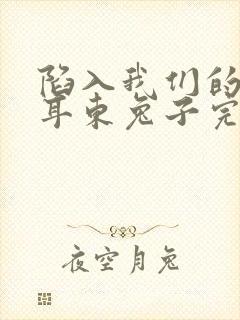 陷入我们的
耳东兔子完
夜空月兔